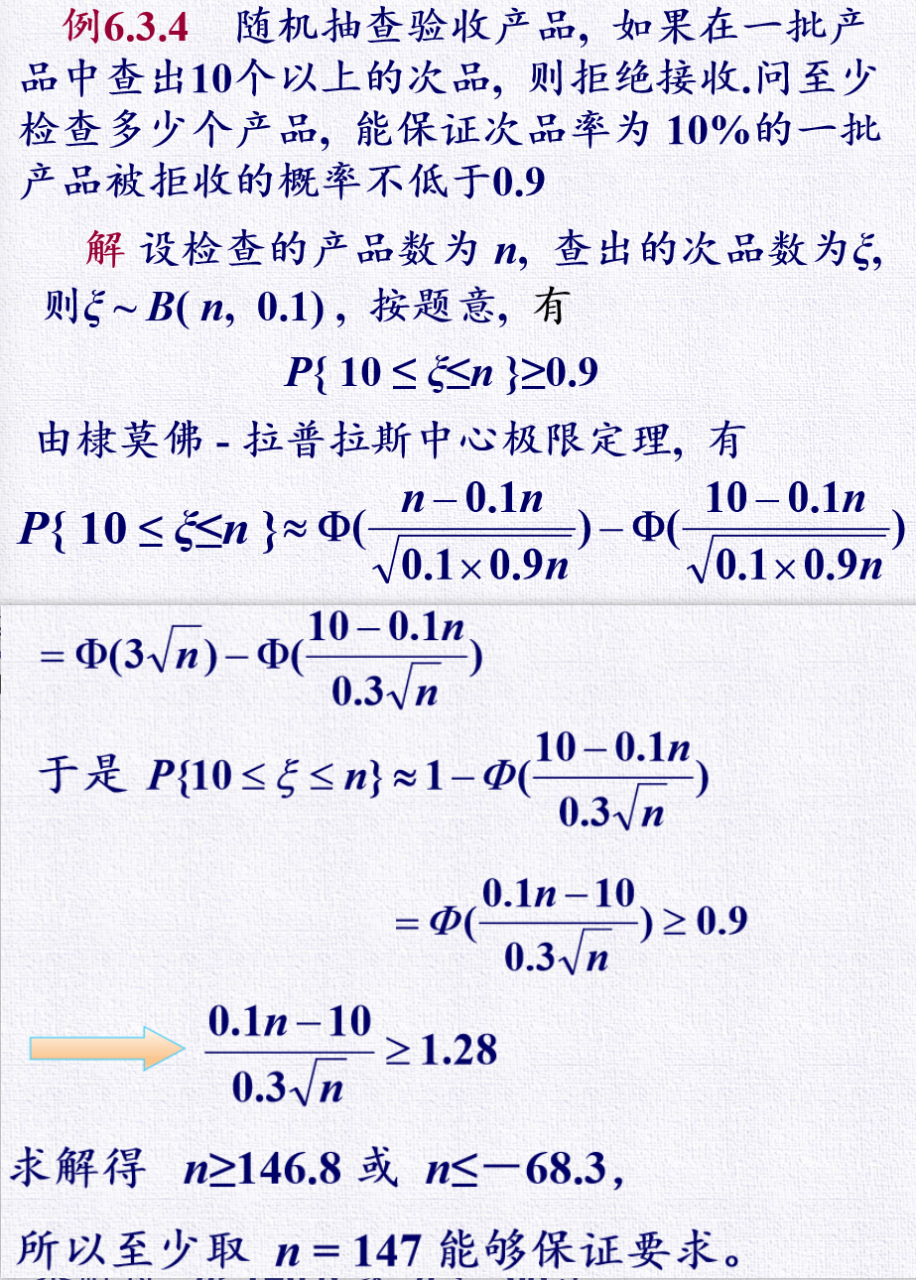 例6.3.4 随机抽查验收产品, 如果在一批产
品中查出10个以上的次品, 则拒绝接收.问至少
检查多少个产品, 能保证次品率为 10%的一批
产品被拒收的概率不低于0.9
解 设检查的产品数为 n, 查出的次品数为ξ,
则ξ ~ B( n, 0.1) , 按题意, 有
P{ 10 ≤ ξ≤n }≥0.9
由棣莫佛 - 拉普拉斯中心极限定理, 有
P{ 10 ≤ ξ≤n }≈ Φ((n − 0.1n)/√(0.1×0.9n)) − Φ((10 − 0.1n)/√(0.1×0.9n))
= Φ(3√n) − Φ((10 − 0.1n)/(0.3√n))
于是 P{10 ≤ ξ ≤ n} ≈ 1 − Φ((10 − 0.1n)/(0.3√n))
= Φ((0.1n − 10)/(0.3√n)) ≥ 0.9
(0.1n − 10)/(0.3√n) ≥ 1.28
求解得 n≥146.8 或 n≤－68.3,
所以至少取 n = 147 能够保证要求。